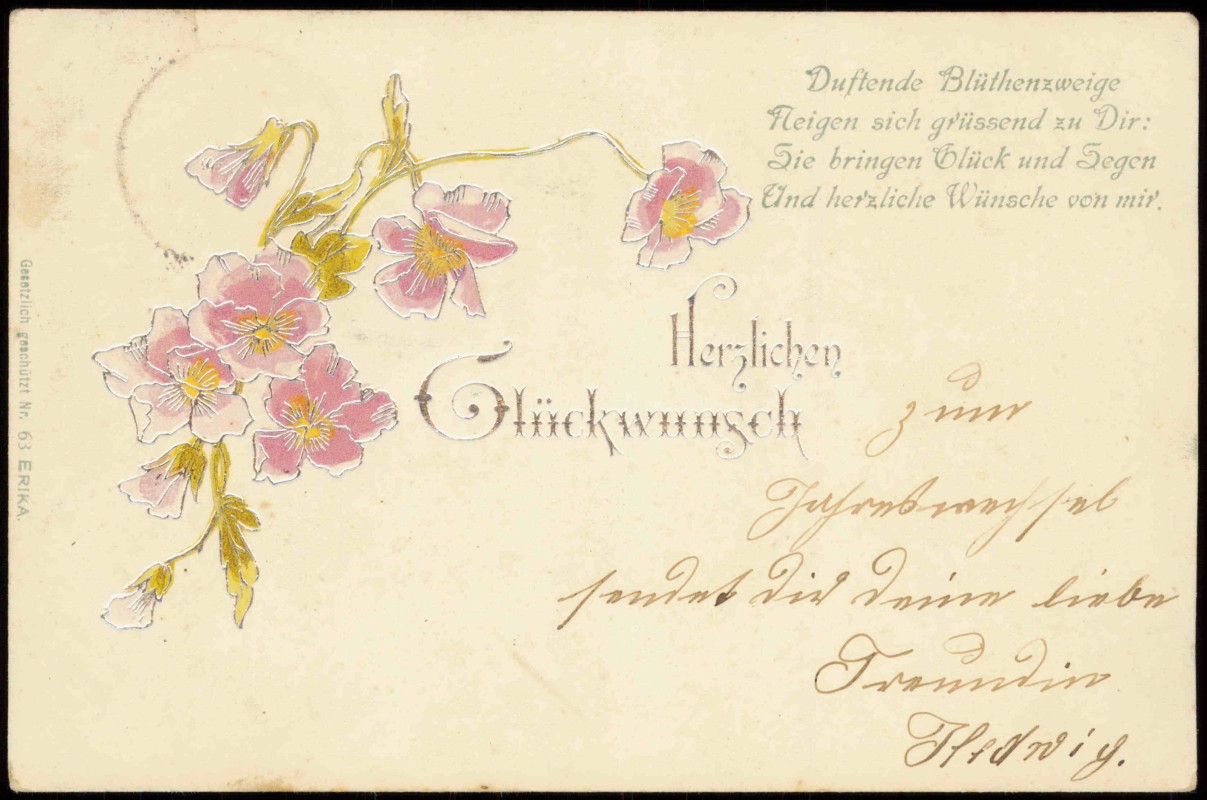 Duftende Blüthenzweige
Neigen sich grüssend zu Dir:
Sie bringen Glück und Segen
Und herzliche Wünsche von mir.
Herzlichen
Glückwunsch
zum
Jahreswechsel
sendet dir deine liebe
Freundin
Hedwig.
Gesetzlich geschützt Nr. 63 ERIKA.